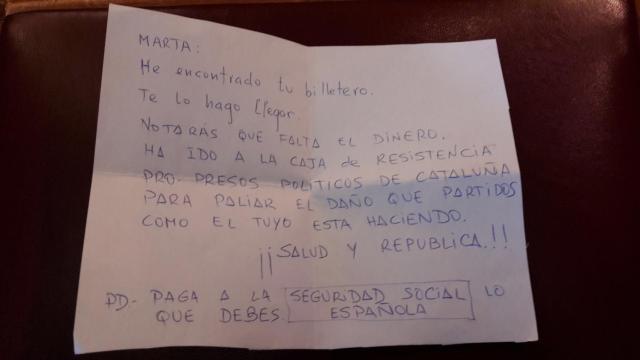 MARTA:
He encontrado tu billetero.
Te lo hago llegar.
NOTARÁS QUE FALTA EL DINERO.
HA IDO A LA CAJA de RESISTENCIA
PRO-PRESOS POLÍTICOS DE CATALUÑA
PARA PALIAR EL DAÑO QUE PARTIDOS
COMO EL TUYO ESTA HACIENDO.
¡¡SALUD Y REPUBLICA.!!
PD- PAGA A LA SEGURIDAD SOCIAL LO
QUE DEBES. ESPAÑOLA